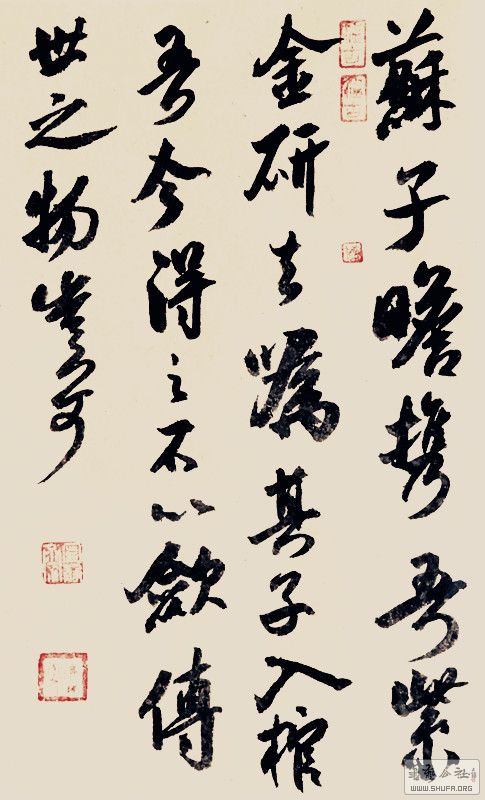 蘇子瞻携吾紫
金研去嘱其子入棺
吾今得之不以歛傳
世之物豈可
WWW.SHUFA.ORG